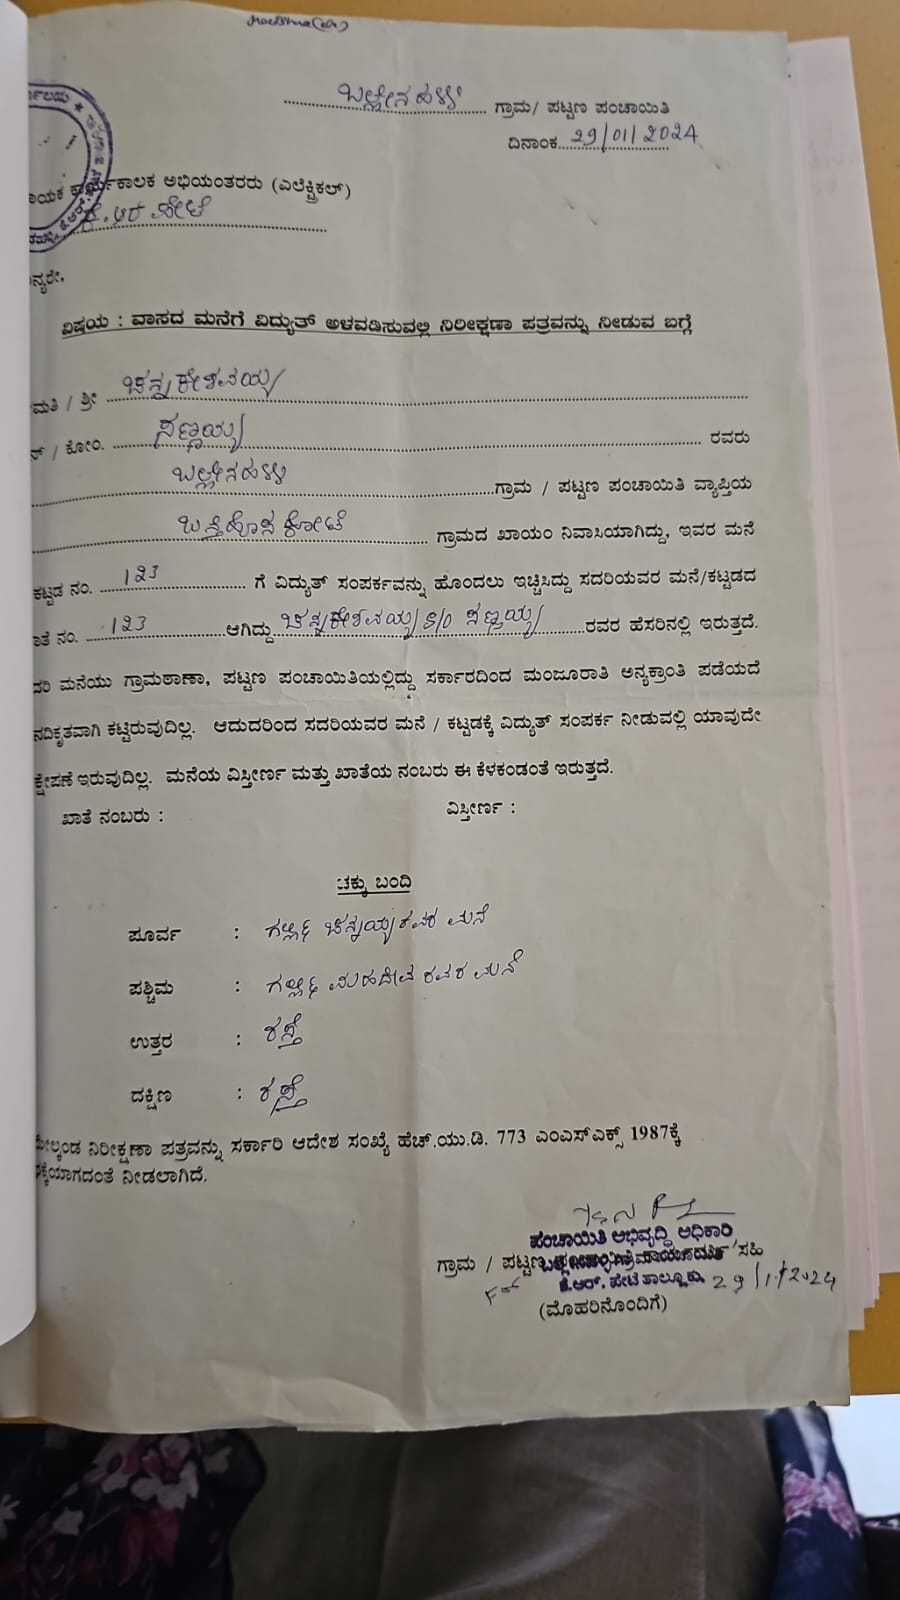 ಬಲ್ಲೇನಹಳ್ಳಿ ಗ್ರಾಮ/ ಪಟ್ಟಣ ಪಂಚಾಯಿತಿ
ದಿನಾಂಕ 29/01/2024
ಾಯಕ ಕಾರ್ಯಕಾಲಕ ಅಭಿಯಂತರರು (ಎಲೆಕ್ಟ್ರಿಕಲ್)
ಕೆ.ಆರ್ ಪೇಟೆ
ನ್ಯರೇ,
ವಿಷಯ : ವಾಸದ ಮನೆಗೆ ವಿದ್ಯುತ್ ಅಳವಡಿಸುವಲ್ಲಿ ನಿರೀಕ್ಷಣಾ ಪತ್ರವನ್ನು ನೀಡುವ ಬಗ್ಗೆ
ಮತಿ / ಶ್ರೀ ಚನ್ನಕೇಶವಯ್ಯ
ನ್ / ಕೋಂ. ಸಣ್ಣಯ್ಯ ರವರು
ಬಲ್ಲೇನಹಳ್ಳಿ ಗ್ರಾಮ / ಪಟ್ಟಣ ಪಂಚಾಯಿತಿ ವ್ಯಾಪ್ತಿಯ
ಗ್ರಾಮದ ಖಾಯಂ ನಿವಾಸಿಯಾಗಿದ್ದು, ಇವರ ಮನೆ
ಕಟ್ಟಡ ನಂ. 123 ಗೆ ವಿದ್ಯುತ್ ಸಂಪರ್ಕವನ್ನು ಹೊಂದಲು ಇಚ್ಚಿಸಿದ್ದು ಸದರಿಯವರ ಮನೆ/ಕಟ್ಟಡದ
ಾತೆ ನಂ. 123 ಆಗಿದ್ದು ಚನ್ನಕೇಶವಯ್ಯ S/O ಸಣ್ಣಯ್ಯ ರವರ ಹೆಸರಿನಲ್ಲಿ ಇರುತ್ತದೆ.
ದರಿ ಮನೆಯು ಗ್ರಾಮಠಾಣಾ, ಪಟ್ಟಣ ಪಂಚಾಯಿತಿಯಲ್ಲಿದ್ದು ಸರ್ಕಾರದಿಂದ ಮಂಜೂರಾತಿ ಅನ್ಯಕ್ರಾಂತಿ ಪಡೆಯದೆ
ನದಿಕೃತವಾಗಿ ಕಟ್ಟಿರುವುದಿಲ್ಲ. ಆದುದರಿಂದ ಸದರಿಯವರ ಮನೆ / ಕಟ್ಟಡಕ್ಕೆ ವಿದ್ಯುತ್ ಸಂಪರ್ಕ ನೀಡುವಲ್ಲಿ ಯಾವುದೇ
ಕ್ಷೇಪಣೆ ಇರುವುದಿಲ್ಲ. ಮನೆಯ ವಿಸ್ತೀರ್ಣ ಮತ್ತು ಖಾತೆಯ ನಂಬರು ಈ ಕೆಳಕಂಡಂತೆ ಇರುತ್ತದೆ.
ಖಾತೆ ನಂಬರು : ವಿಸ್ತೀರ್ಣ :
ಚಕ್ಕು ಬಂದಿ
ಪೂರ್ವ : ಗಲ್ಲಿ ಚನ್ನಯ್ಯರವರ ಮನೆ
ಪಶ್ಚಿಮ : ಗಲ್ಲಿ ಮಹದೇವರವರ ಮನೆ
ಉತ್ತರ : ರಸ್ತೆ
ದಕ್ಷಿಣ : ರಸ್ತೆ
ಮೇಲ್ಕಂಡ ನಿರೀಕ್ಷಣಾ ಪತ್ರವನ್ನು ಸರ್ಕಾರಿ ಆದೇಶ ಸಂಖ್ಯೆ ಹೆಚ್.ಯು.ಡಿ. 773 ಎಂಎಸ್ಎಕ್ಸ್ 1987ಕ್ಕೆ
ಕ್ಕೆಯಾಗದಂತೆ ನೀಡಲಾಗಿದೆ.
ಪಂಚಾಯಿತಿ ಅಭಿವೃದ್ಧಿ ಅಧಿಕಾರಿ
ಗ್ರಾಮ / ಪಟ್ಟಣ ಸಹಿ
ಕೆ.ಆರ್. ಪೇಟೆ ತಾಲ್ಲೂಕು 29/1/2024
(ಮೊಹರಿನೊಂದಿಗೆ)